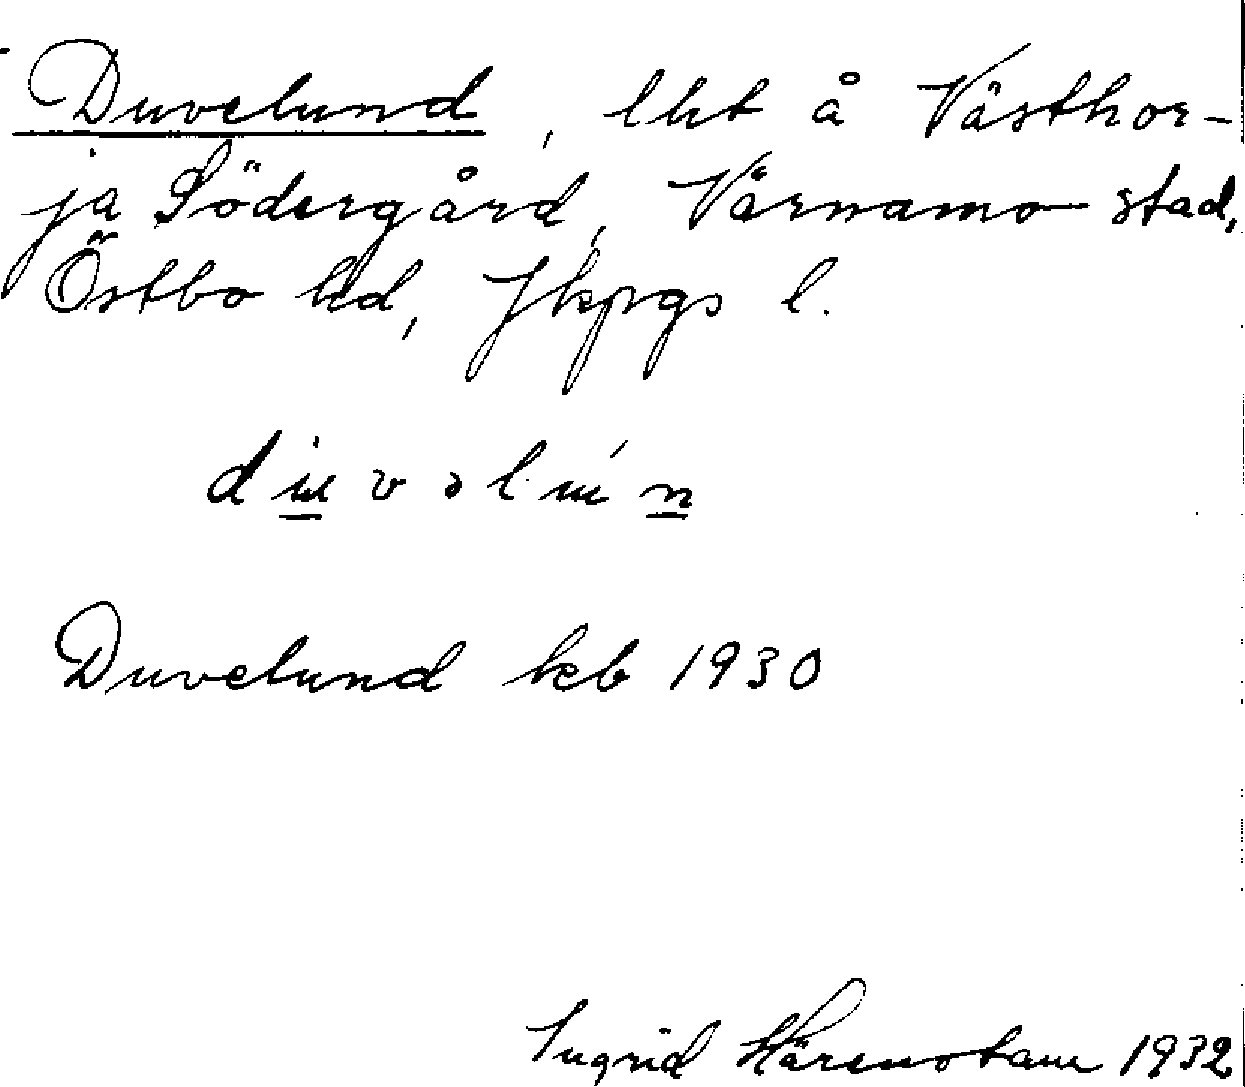 Duvelund, lht å Västhor-
ja Södergård, Värnamo stad,
Östbo hd, Jkpgs l.
Duvelund kb 1930
Ingrid Härenstam 1932